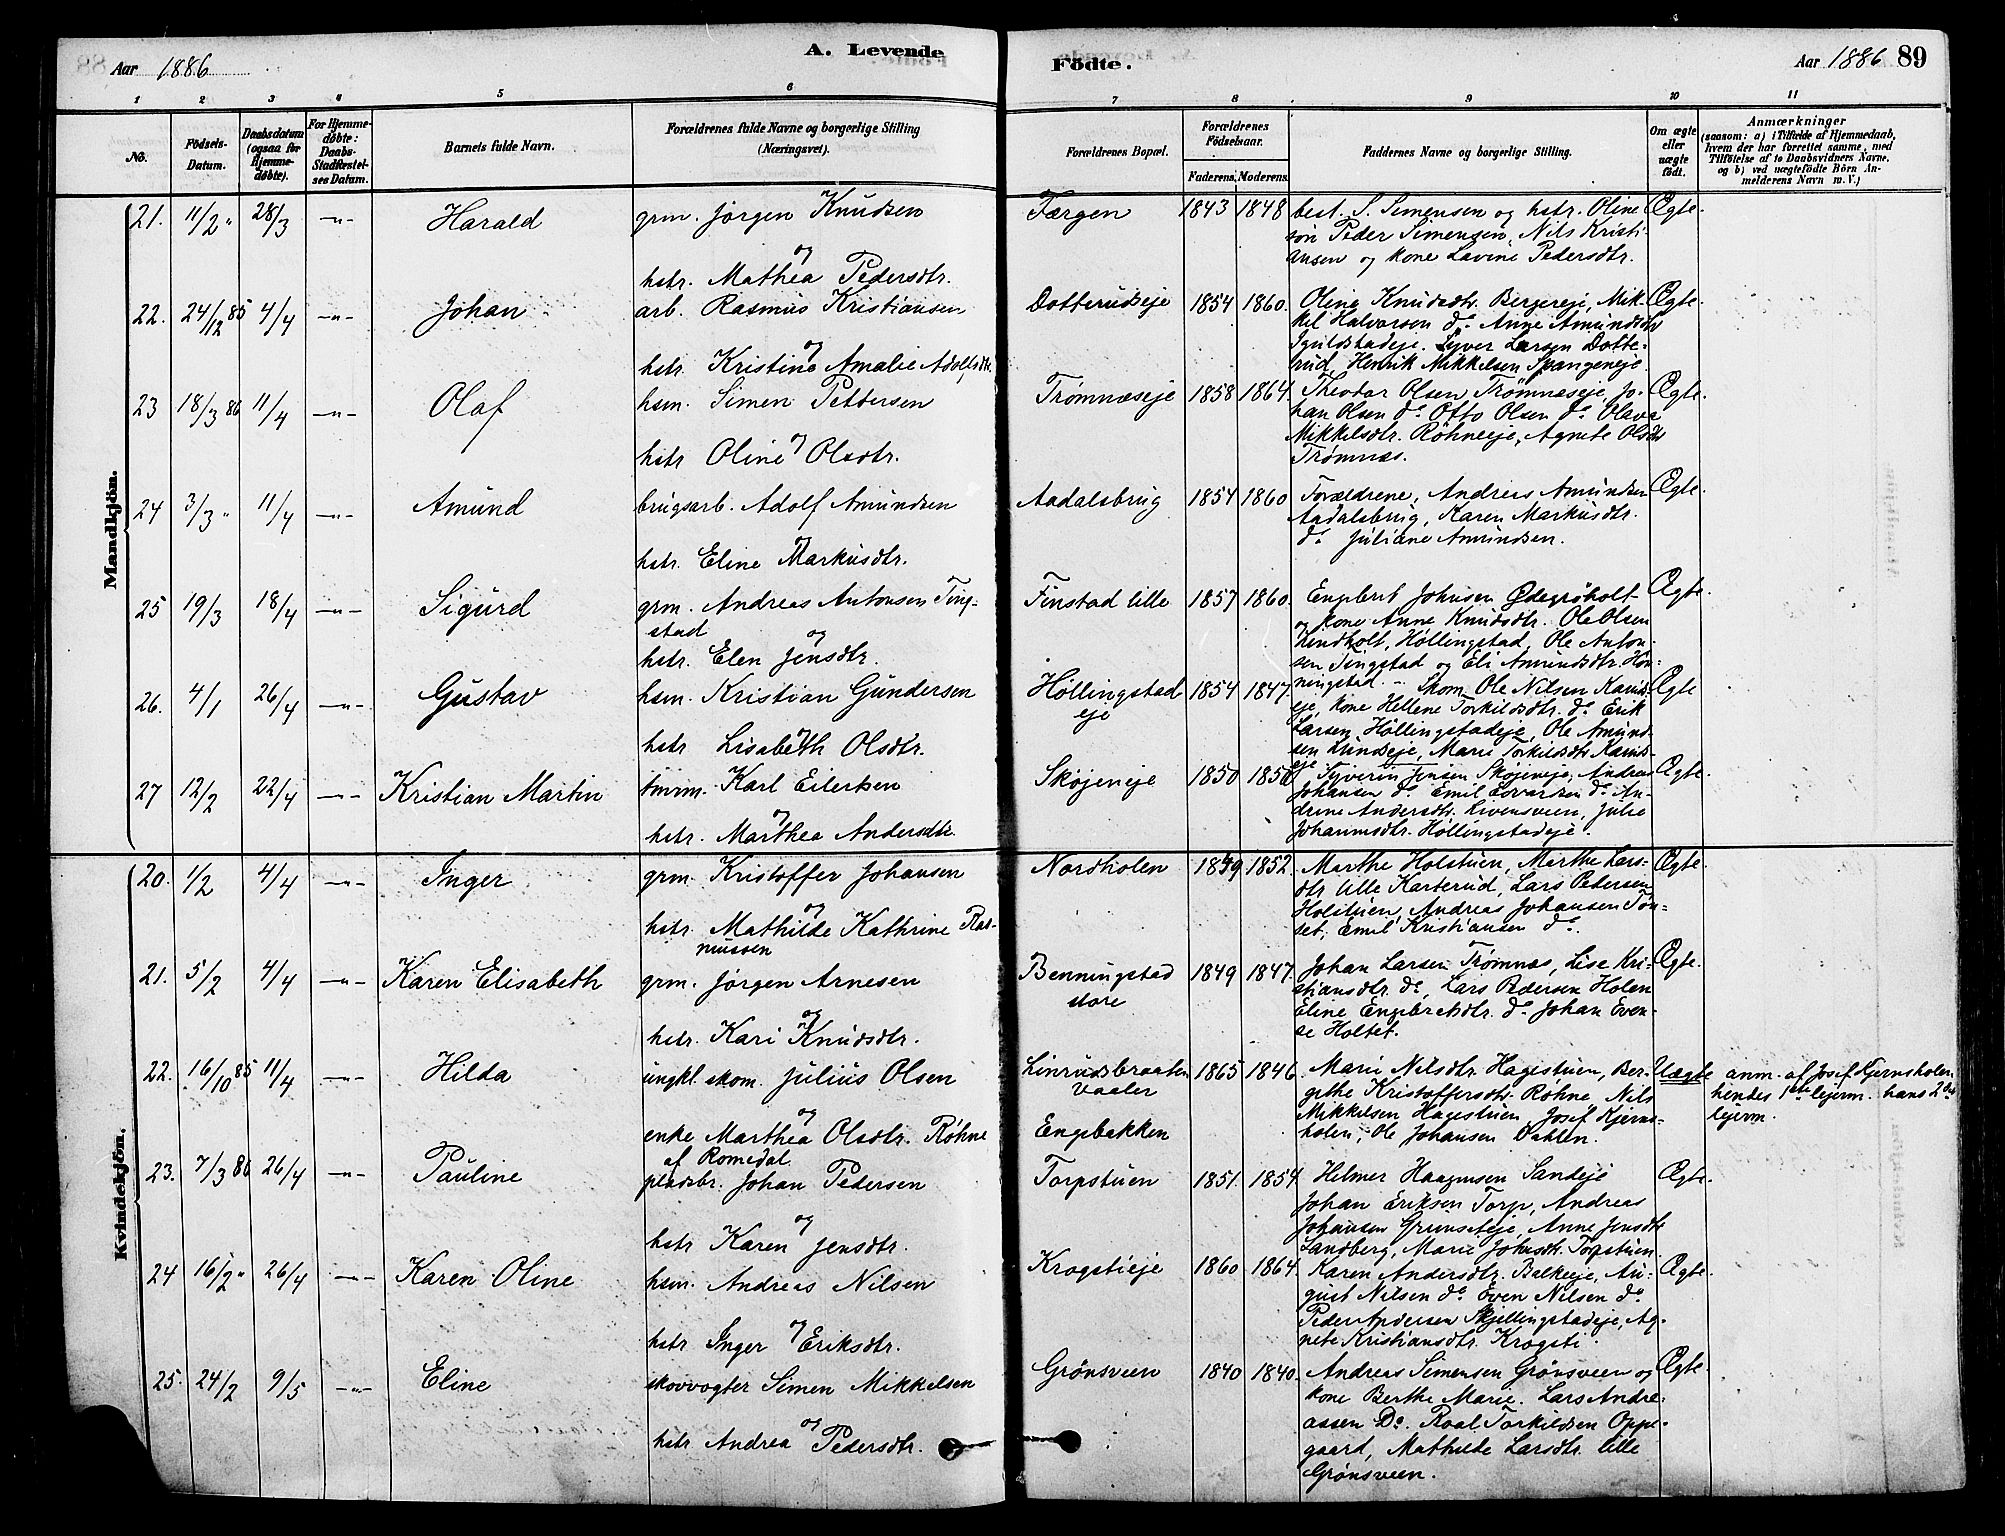 Aar 1886
A. Levende
Födte.
Aar 1886
89
1 2 3 4 5 6 7 8 9 10 11
No.
Födsels-
Datum.
Daabsdatum
(ogsaa for
Hjemme-
döbte).
For Hjemme-
døbte:
Daabs-
Stadfæstel-
ses Datum.
Barnets fulde Navn.
Forældrenes fulde Navne og borgerlige Stilling
(Næringsvei).
Forældrenes Bopæl.
Forældrenes
Födselsaar.
Faderens. Moderens.
Faddernes Navne og borgerlige Stilling.
Om ægte
eller
uægte
født.
Anmærkninger
(saasom: a) i Tilfælde af Hjemmedaab,
hvem der har forrettet samme, med
Tilføielse af to Daabsvidners Navne,
og b) ved uægtefödte Börn An-
melderens Navn m. V.)
Mandkjön.
21. 11/2 " 28/3 -"- Harald
grm. Jörgen Knudsen
og
hstr. Mathea Pedersdtr.
Færgen 1843 1848
best. S. Simensen og hstr. Oline
sön Peder Simensen, Nils Kristi-
ansen og kone Lavine Pedersdtr.
Ægte.
22. 24/12 85 4/4 -"- Johan
arb. Rasmus Kristiansen
og
hstr. Kristine Amalie Adolfsdtr.
Dotterudseje 1854 1860.
Oline Knudsdtr. Bergereje, Mik-
kel Halvorsen do. Anne Amundsdtr
Syver Larsen Dotte-
rud, Henrik Mikkelsen Spangeneje.
Ægte.
23 18/3 86 11/4 -"- Olaf
hsm. Simen Pettersen
og
hstr Oline Olsdtr.
Trømnæseje 1858 1864.
Theodor Olsen Trømnæseje, Jo-
han Olsen do. Otto Olsen do. Olava
Mikkelsdtr. Røhneeje, Agnete Olsdtr
Trømnæs.
Ægte.
24 3/3 " 11/4 -"- Amund
brugsarb. Adolf Amundsen
og
hstr. Eline Markusdtr.
Aadalsbrug 1854 1860
Forældrene, Andreas Amundsen
Aadalsbrug, Karen Markusdtr.
do. Juliane Amundsen.
Ægte.
25 19/3 18/4 -"- Sigurd
grm. Andreas Antonsen Ting-
stad
og
hstr. Elen Jensdtr.
Finstad lille 1857 1860.
Engebret Johnsen Ødegröholt
og kone Anne Knudsdtr. Ole Olsen
Lundholt, Höllingstad, Ole Anton-
sen Tingstad og Eli Amundsdtr. Hön-
ningstad.
Ægte.
26. 4/1 26/4 -"- Gustav
hsm. Kristian Gundersen
og
hstr Lisabeth Olsdtr.
Höllingstad
eje
1854 1847.
Skom. Ole Nilsen
eje, kone Hellene Torkildsdtr. do. Erik
Larsen Höllingstadeje, Ole Amund-
sen Lundseje, Marie Torkildsdtr
eje.
Ægte
27 12/2 22/4 -"- Kristian Martin
tömm. Karl Eilertsen
og
hstr. Marthea Andersdtr.
Skøjeneje 1850 1850
Syverin Jensen Skøjeneje, Andreas
Johansen do. Emil Edvardsen do. An-
drine Andersdtr. Livensveen, Julie
Johannsdtr. Höllingstadeje.
Ægte.
Kvindekjön.
20. 1/2 4/4 -"- Inger
grm. Kristoffer Johansen
og
hstr. Mathilde Kathrine Ras-
mussen
Nordholen 1849 1852.
Marthe Holstuen, Marthe Lars-
dtr lille Karterud, Lars Pedersen
Holstuen, Andreas Johansen Tön-
set, Emil Kristiansen do.
Ægte.
21. 5/2 4/4 -"- Karen Elisabeth
grm. Jörgen Arnesen
og
hstr. Kari Knudsdtr.
Benningstad
store
1849 1847.
Johan Larsen Trømnæs, Lise Kri-
stiansdtr. do, Lars Pedersen Holen
Eline Engebretsdtr. do Johan Even-
se Holtet.
Ægte.
22. 16/10 85 11/4 -"- Hilda
ungkl. skom. Julius Olsen
og
enke Marthea Olsdtr. Röhne
af Romedal.
Linrudsbraaten
Vaaler
Engebakken
1865 1846.
Marie Nilsdtr. Hagestuen, Ber-
gethe Kristoffersdtr. Røhne, Nils
Mikkelsen Hagestuen Josef Kjerns-
holen, Ole Johansen Dahlen.
Uægte
anm. af Josef Kjernsholen
hendes 1ste lejerm. hans 2det
lejerm.
23. 7/3 86 26/4 -"- Pauline
pladsbr. Johan Pedersen
og
hstr Karen Jensdtr.
Torpstuen 1851. 1854.
Helmer Haagensen Sandeje
Johan Eriksen Torp, Andreas
Johansen Grunseteje, Anne Jensdtr
Sandberg, Marie Johnsdtr. Torpstuen.
Ægte.
24 16/2 " 26/4 -"- Karen Oline
hsm. Andreas Nilsen
og
hstr Inger Eriksdtr.
Krogstieje 1860 1864.
Karen Andersdtr. Balkeeje, Au-
gust Nilsen do Even Nilsen do.
Peder Andersen Skjellingstadeje, Ag-
nete Kristiansdtr. Krogsti
Ægte.
25. 24/2 9/5 -"- Eline
skovvogter Simen Mikkelsen
og
hstr Andrea Pedersdtr.
Grönsveen 1840 1840.
Andreas Simensen Grönsveen og
kone Berthe Marie. Lars Andre-
assen Do. Roal Torkildsen Oppe-
gaard, Mathilde Larsdtr. lille
Grönsveen.
Ægte.